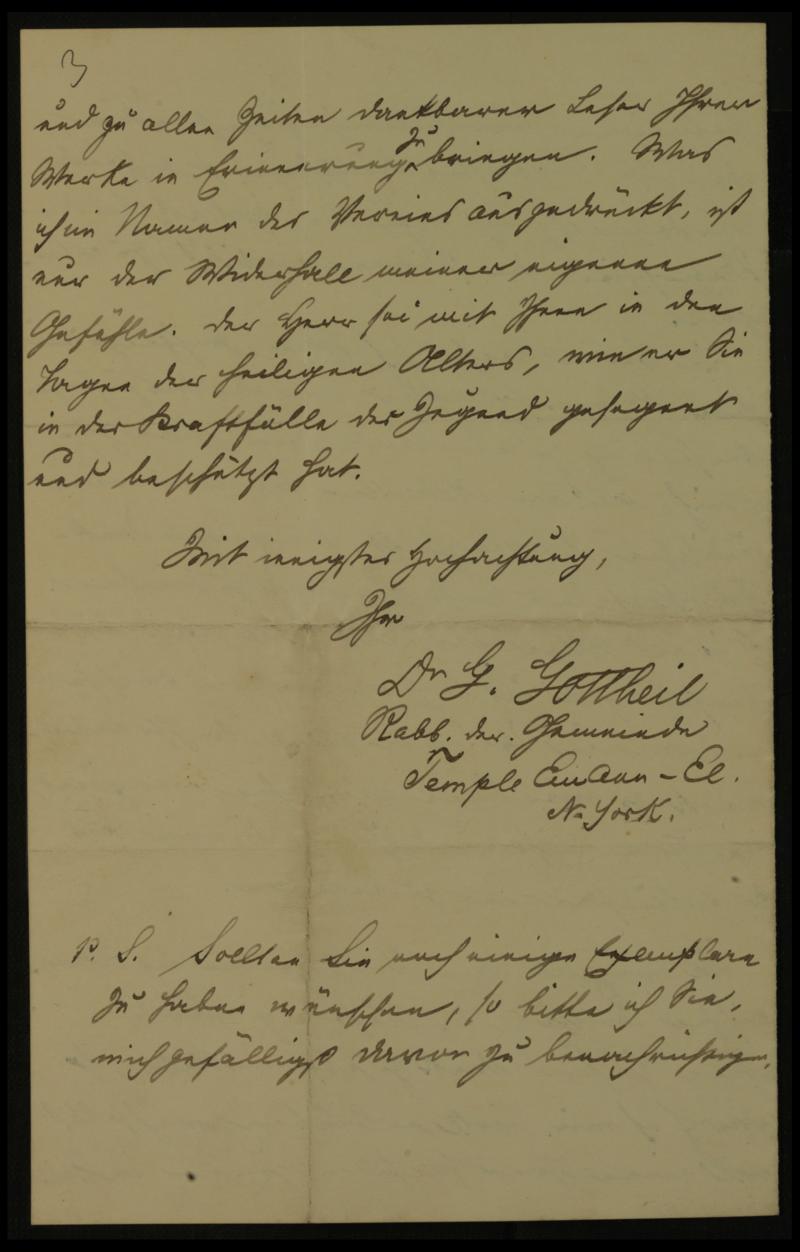 3
und zu allen Zeiten dankbarer Leser Ihrer
Werke in Erinnerung zu bringen. Was
ich im Namen des Vereins ausgedrückt, ist
nur der Widerhall meiner eigenen
Gefühle. Der Herr sei mit Ihnen in den
Tagen des heiligen Alters, wie er Sie
in der Kraftfülle der Jugend gesegnet
und beschützt hat.
Mit innigster Hochachtung,
Ihr
Dr G. Gottheil
Rabb. der. Gemeinde
Temple Emanu-El.
N. York.
P. S. Sollten Sie noch einige Exemplare
zu haben wünschen, so bitte ich Sie,
mich gefälligst davon zu benachrichtigen.